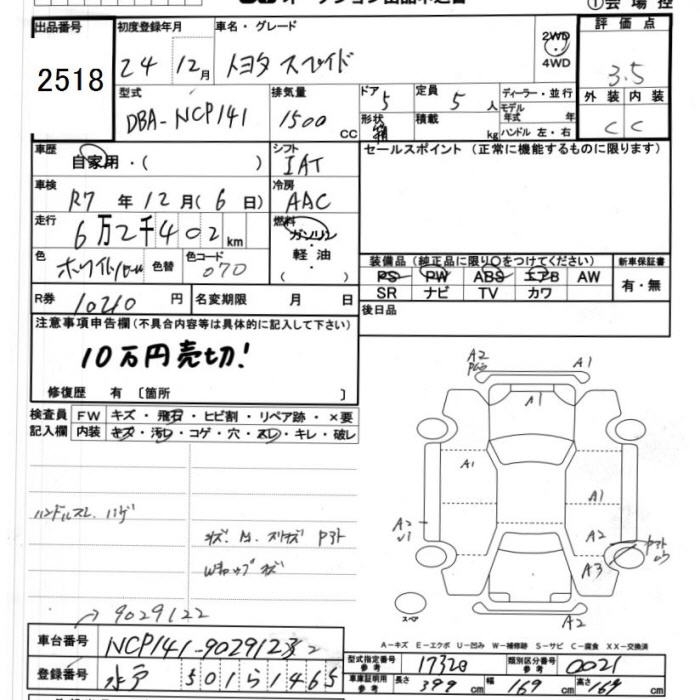 ①会場控
出品番号 2518
初度登録年月 24 12月
車名・グレード トヨタ スペイド
2WD
4WD
評価点 3.5
外装 C 内装 C
型式 DBA-NCP141
排気量 1500 CC
ドア 5 形状 箱
定員 5 人
積載 kg
ディーラー・並行
モデル年式 年式
ハンドル 左・右
車歴 自家用・( )
シフト IAT
セールスポイント (正常に機能するものに限ります)
車検 R7 年 12月( 6 日)
冷房 AAC
走行 6万2千402 km
燃料 ガソリン・軽油 ( )
色 ホワイトパール 色替 色コード 070
装備品 (純正品に限り○をつけてください) 新車保証書
PS PW ABS エアB AW 有・無
SR ナビ TV カワ
R券 10210 円 名変期限 月 日
後日品
注意事項申告欄 (不具合内容等は具体的に記入して下さい)
10万円売切!
修復歴 有 〔箇所 〕
検査員記入欄
FW キズ・飛石・ヒビ割・リペア跡・×要
内装 キズ・汚レ・コゲ・穴・スレ・キレ・破レ
ハンドルスレ ハゲ
A2
A1
A1
A1
A1
A2
U1
A2
A3
A2
スペア
A-キズ E-エクボ U-凹み W-補修跡 S-サビ C-腐食 XX-交換済
9029122
車台番号 NCP141-9029123 2
登録番号 水戸 501 5 1465
型式指定番号 参考 17320 類別区分番号 参考 0021
車庫証明用 参考 長さ 399 cm 幅 169 cm 高さ 169 cm